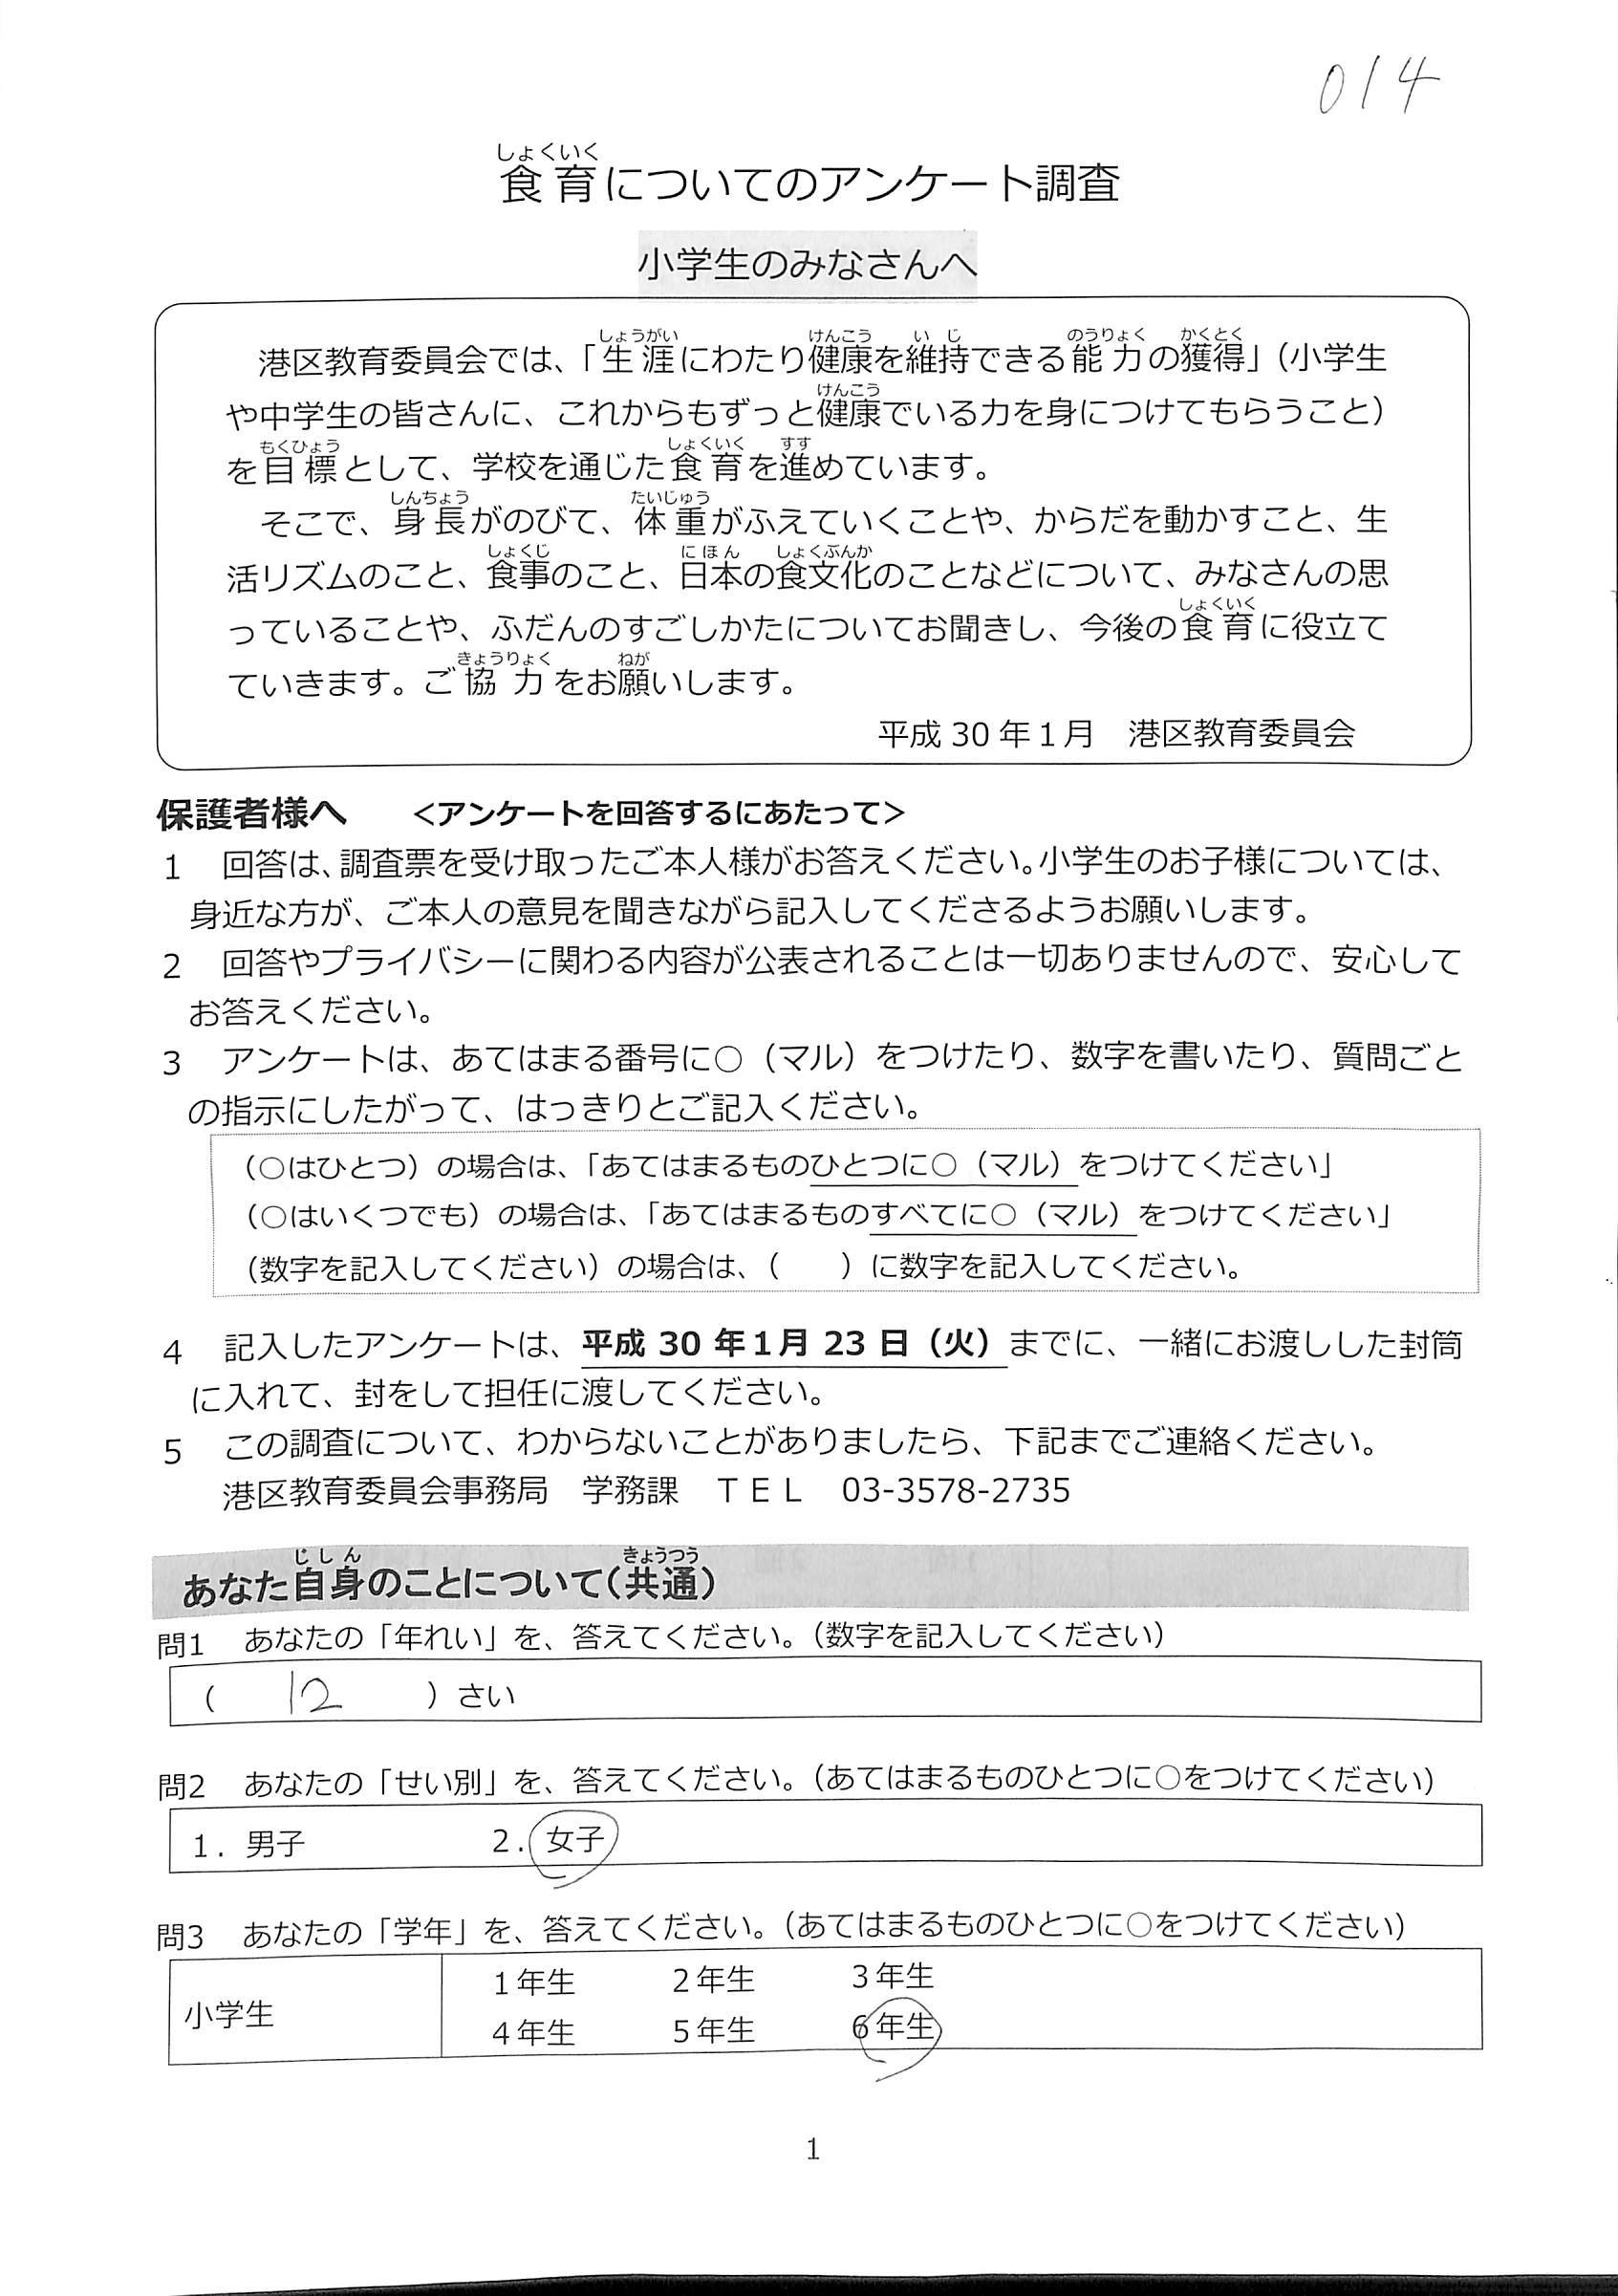 014
食育についてのアンケート調査
小学生のみなさんへ
港区教育委員会では、「生涯にわたり健康を維持できる能力の獲得」（小学生
や中学生の皆さんに、これからもずっと健康でいる力を身につけてもらうこと）
を目標として、学校を通じた食育を進めています。
そこで、身長がのびて、体重がふえていくことや、からだを動かすこと、生
活リズムのこと、食事のこと、日本の食文化のことなどについて、みなさんの思
っていることや、ふだんのすごしかたについてお聞きし、今後の食育に役立て
ていきます。ご協力をお願いします。
平成 30 年１月　港区教育委員会
保護者様へ　＜アンケートを回答するにあたって＞
1　回答は、調査票を受け取ったご本人様がお答えください。小学生のお子様については、
身近な方が、ご本人の意見を聞きながら記入してくださるようお願いします。
2　回答やプライバシーに関わる内容が公表されることは一切ありませんので、安心して
お答えください。
3　アンケートは、あてはまる番号に○（マル）をつけたり、数字を書いたり、質問ごと
の指示にしたがって、はっきりとご記入ください。
（○はひとつ）の場合は、「あてはまるものひとつに○（マル）をつけてください」
（○はいくつでも）の場合は、「あてはまるものすべてに○（マル）をつけてください」
（数字を記入してください）の場合は、（　　）に数字を記入してください。
4　記入したアンケートは、平成 30 年１月 23 日（火）までに、一緒にお渡しした封筒
に入れて、封をして担任に渡してください。
5　この調査について、わからないことがありましたら、下記までご連絡ください。
港区教育委員会事務局　学務課　ＴＥＬ　03-3578-2735
あなた自身のことについて（共通）
問1　あなたの「年れい」を、答えてください。（数字を記入してください）
（　12　）さい
問2　あなたの「せい別」を、答えてください。（あてはまるものひとつに○をつけてください）
1．男子　2．女子
問3　あなたの「学年」を、答えてください。（あてはまるものひとつに○をつけてください）
小学生
１年生　２年生　３年生
４年生　５年生　６年生
1